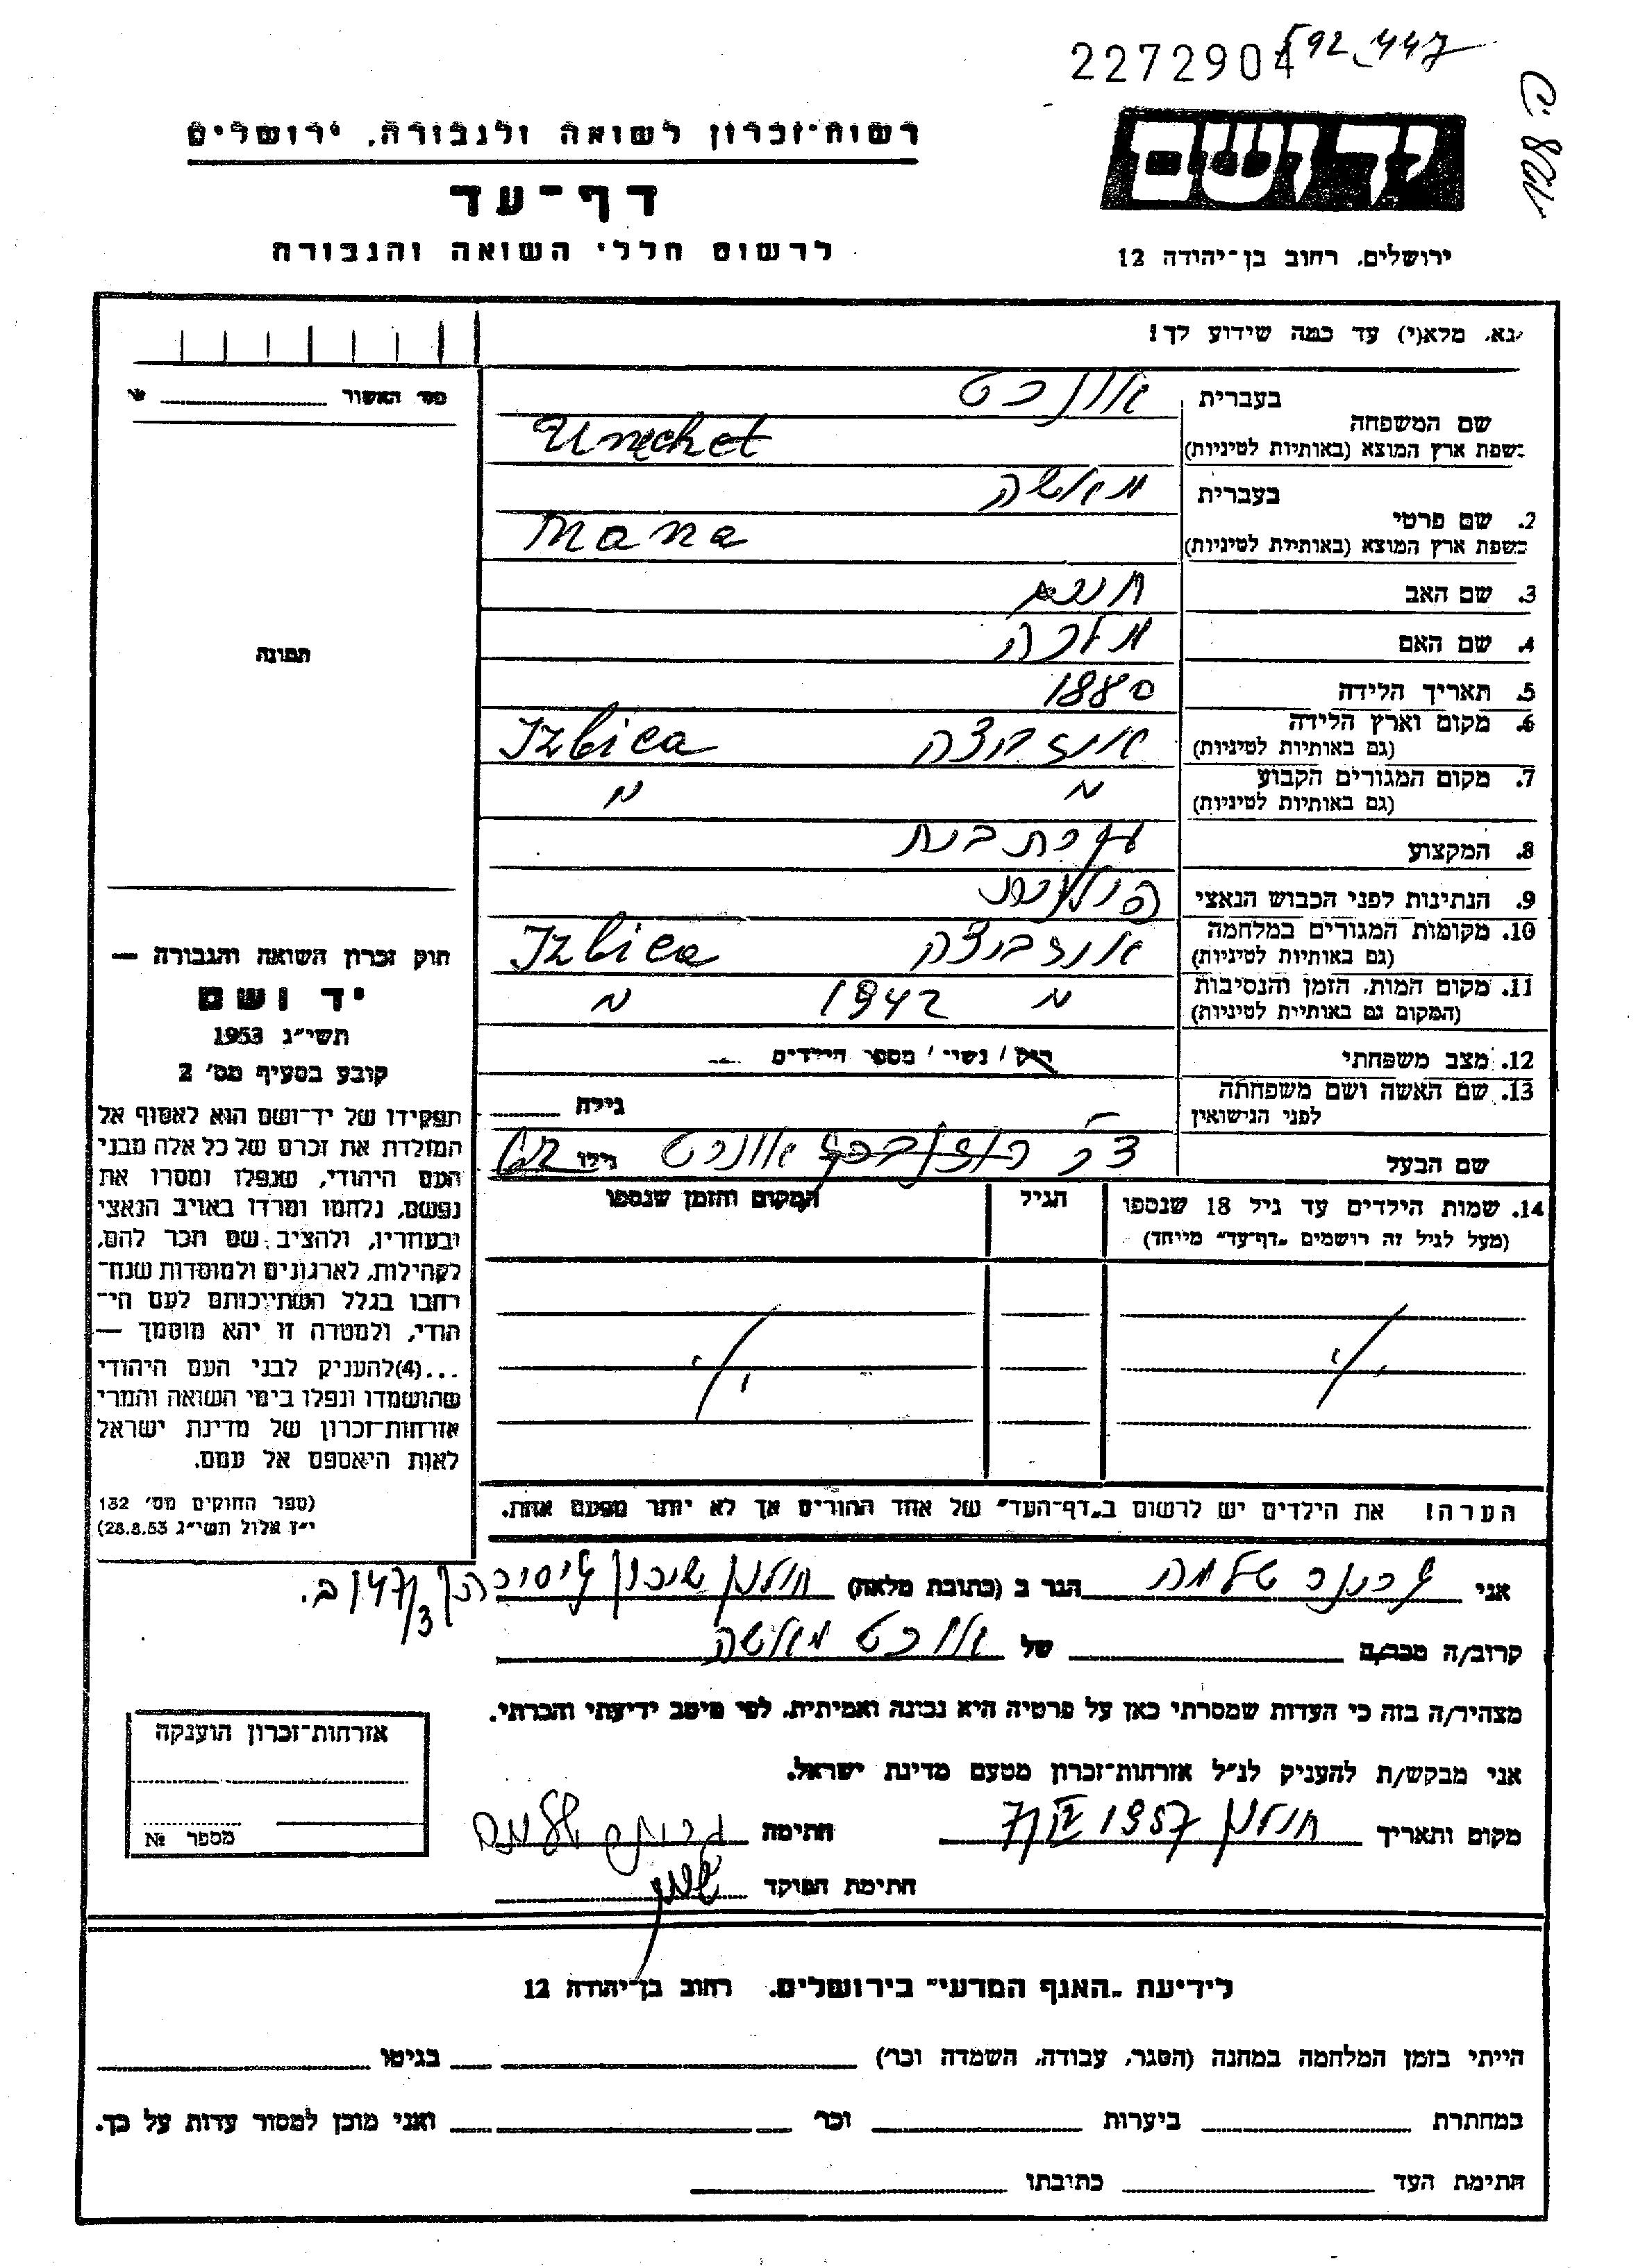 2272904
רשות-זכרון לשואה ולגבורה, ירושלים
דף-עד
לרשום חללי השואה והגבורה
יד ושם
ירושלים, רחוב בן-יהודה 12
נא, מלא(י) עד כמה שידוע לך!
מס' האשור
שם המשפחה
בעברית
אונכט
בשפת ארץ המוצא (באותיות לטיניות)
Unechet
2. שם פרטי
בעברית
מאשה
בשפת ארץ המוצא (באותיות לטיניות)
3. שם האב
4. שם האם מלכה
5. תאריך הלידה 1880
6. מקום וארץ הלידה
(גם באותיות לטיניות)
איזביצה Izbica
7. מקום המגורים הקבוע
(גם באותיות לטיניות)
8. המקצוע עקרת בית
9. הנתינות לפני הכבוש הנאצי פולנית
10. מקומות המגורים במלחמה
(גם באותיות לטיניות)
איזביצה Izbica
11. מקום המות, הזמן והנסיבות
(המקום גם באותיות לטיניות)
1942
12. מצב משפחתי
רוק / נשוי / מספר הילדים
13. שם האשה ושם משפחתה
לפני הנישואין
גילה
שם הבעל
אונכט גילו 62
14. שמות הילדים עד גיל 18 שנספו
(מעל לגיל זה רושמים "דף-עד" מייחד)
הגיל
המקום והזמן שנספו
הערה! את הילדים יש לרשום ב"דף-העד" של אחד ההורים אך לא יותר מפעם אחת.
תמונה
חוק זכרון השואה והגבורה —
יד ושם
תשי"ג 1953
קובע בסעיף מס' 2
תפקידו של יד-ושם הוא לאסוף אל
המולדת את זכרם של כל אלה מבני
העם היהודי, שנפלו ומסרו את
נפשם, נלחמו ומרדו באויב הנאצי
ובעוזריו, ולהציב שם וזכר להם,
לקהילות, לארגונים ולמוסדות שנח-
רבו בגלל השתייכותם לעם הי-
הודי, ולמטרה זו יהא מוסמך —
...(4)להעניק לבני העם היהודי
שהושמדו ונפלו בימי השואה והמרי
אזרחות-זכרון של מדינת ישראל
לאות היאספם אל עמם.
(ספר החוקים מס' 132
י"ז אלול תשי"ג 28.8.53)
אני שלמה הגר ב (כתובת מלאה) חולון שיכון
קרוב/ה מכר/ה של אונכט מאשה
מצהיר/ה בזה כי העדות שמסרתי כאן על פרטיה היא נכונה ואמיתית, לפי מיטב ידיעתי והכרתי.
אני מבקש/ת להעניק לנ"ל אזרחות-זכרון מטעם מדינת ישראל.
מקום ותאריך חולון 7/V 1957 חתימה
חתימת הפוקד
אזרחות-זכרון הוענקה
מספר №
לידיעת "האגף המדעי" בירושלים. רחוב בן-יהודה 12
הייתי בזמן המלחמה במחנה (הסגר, עבודה, השמדה וכו') בגיטו
במחתרת ביערות וכו' ואני מוכן למסור עדות על כך.
חתימת העד כתובתו